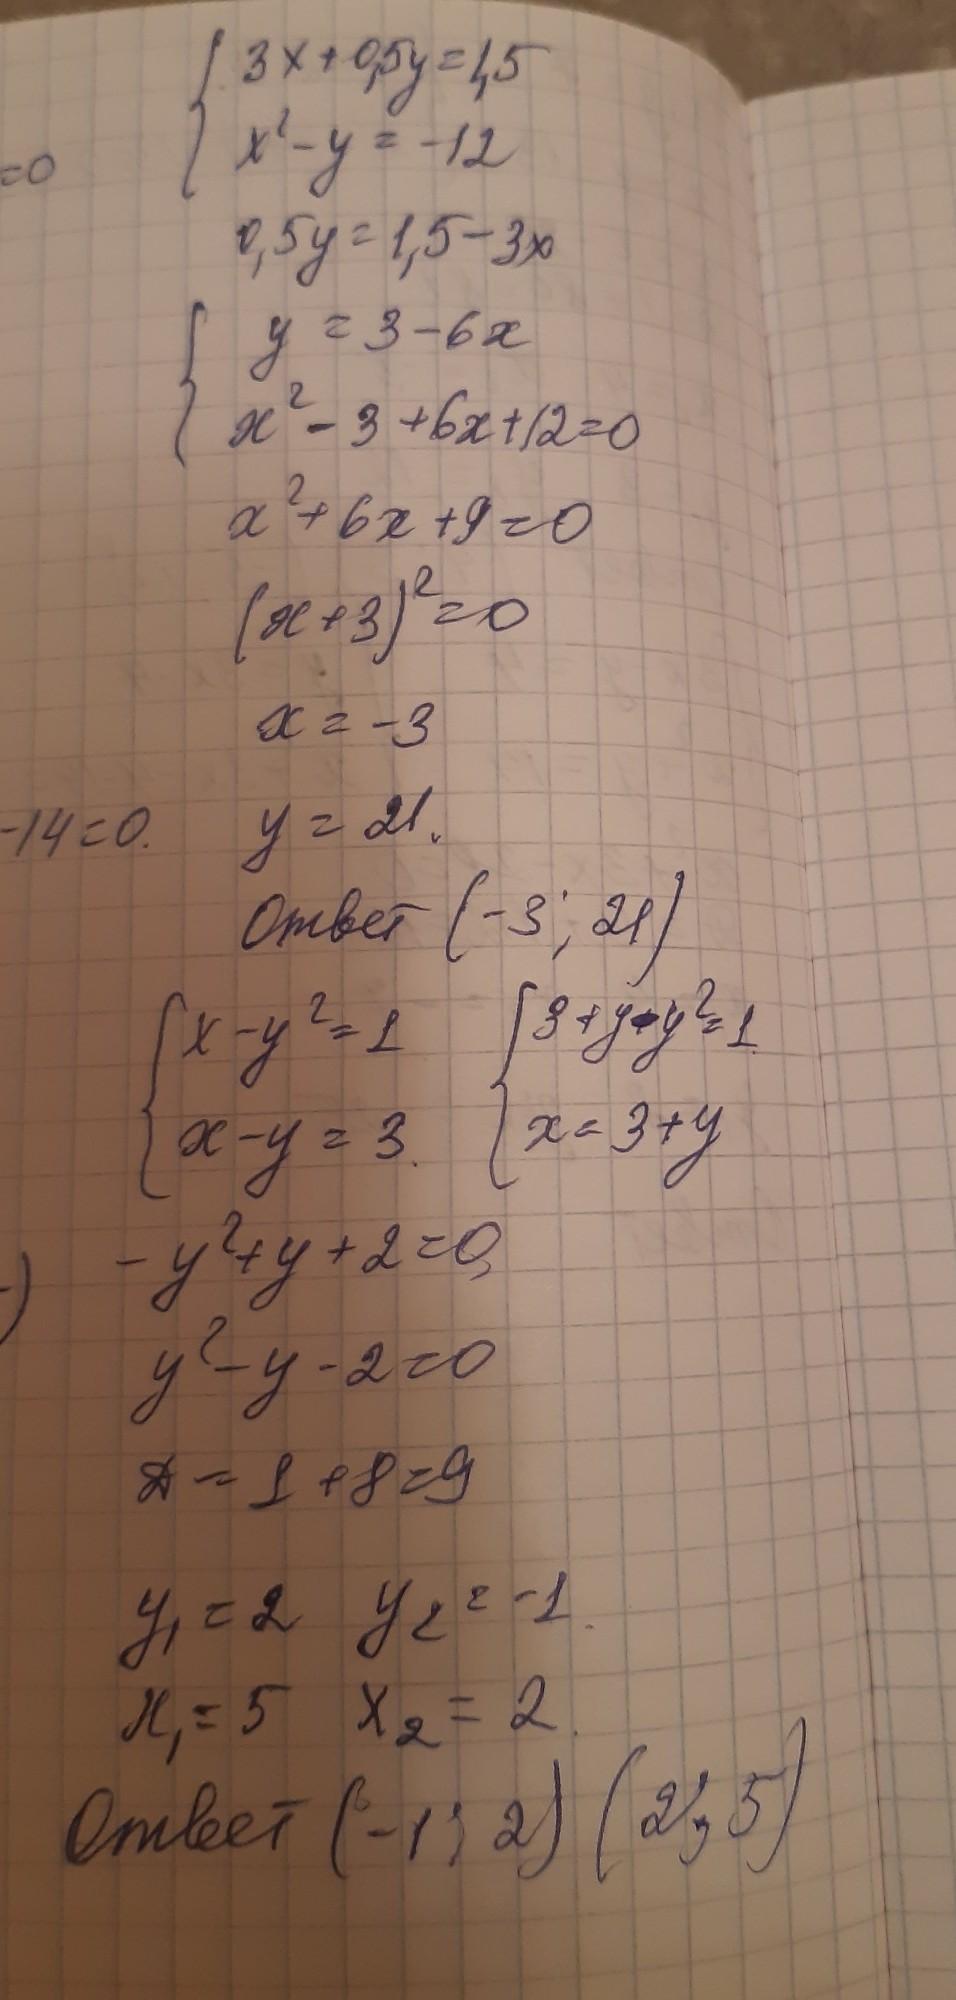 3x+0,5y=1,5
x²-y=-12
=0
0,5y=1,5-3x
y=3-6x
x²-3+6x+12=0
x²+6x+9=0
(x+3)²=0
x=-3
-14=0. y=21.
Ответ (-3; 21)
x-y²=1 3+y-y²=1
x-y=3. x=3+y
-y²+y+2=0,
)
y²-y-2=0
Д=1+8=9
y₁=2 y₂=-1.
x₁=5 x₂=2.
Ответ (-1; 2) (2; 5)